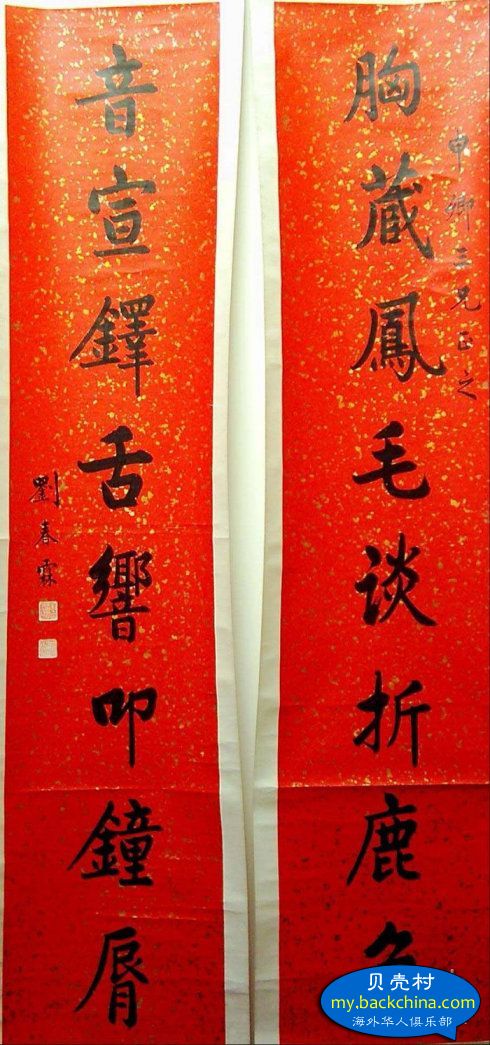 申卿三兄正之
胸藏鳳毛谈折鹿
音宣鐸舌響叩鐘脣
劉春霖
贝壳村
my.backchina.com
海外华人俱乐部